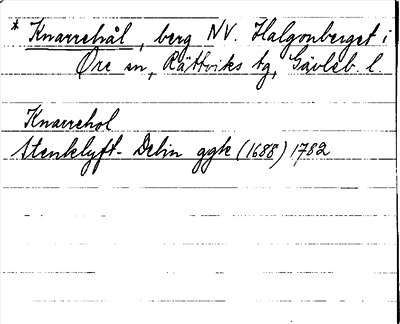 * Knarrehål, berg NV. Halgonberget i
Ore sn, Rättviks tg, Gävleb. l
Knarrehol
Stenklyft- Delin ggk (1688) 1782